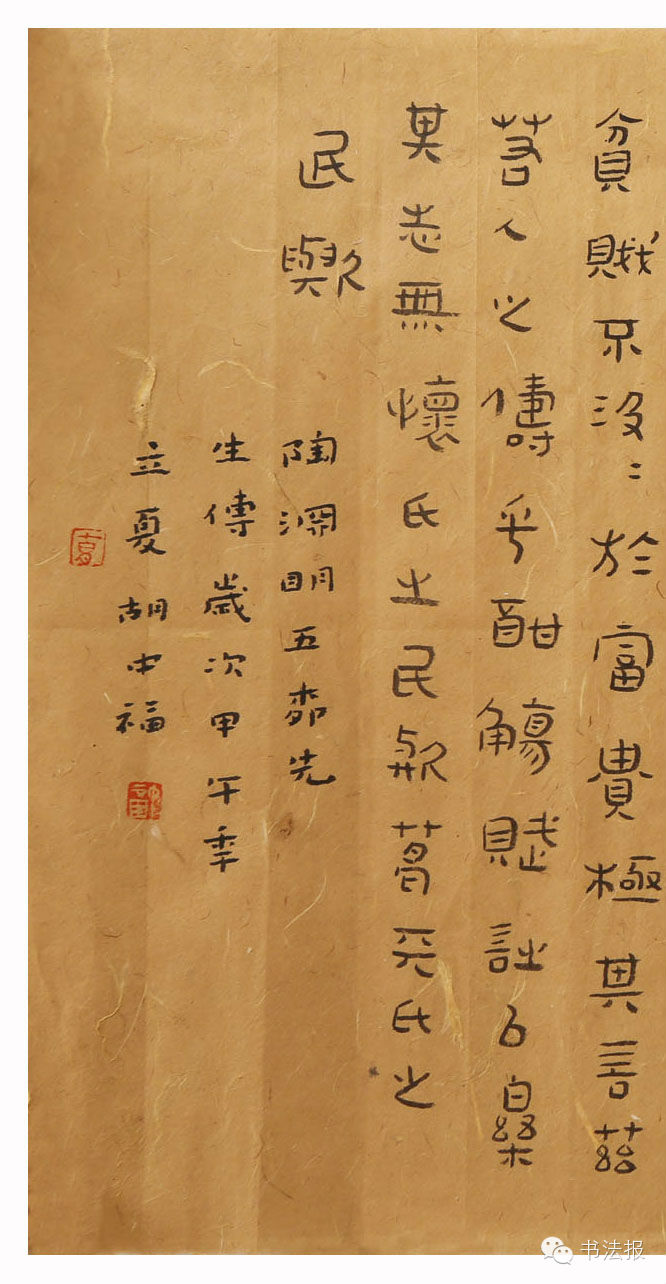 貧賤不汲〻於富貴極其言茲
若人之儔乎酣觴賦詩以樂
其志無懷氏之民歟葛天氏之
民歟
陶淵明五柳先
生傳歲次甲午年
立夏胡中福
书法报